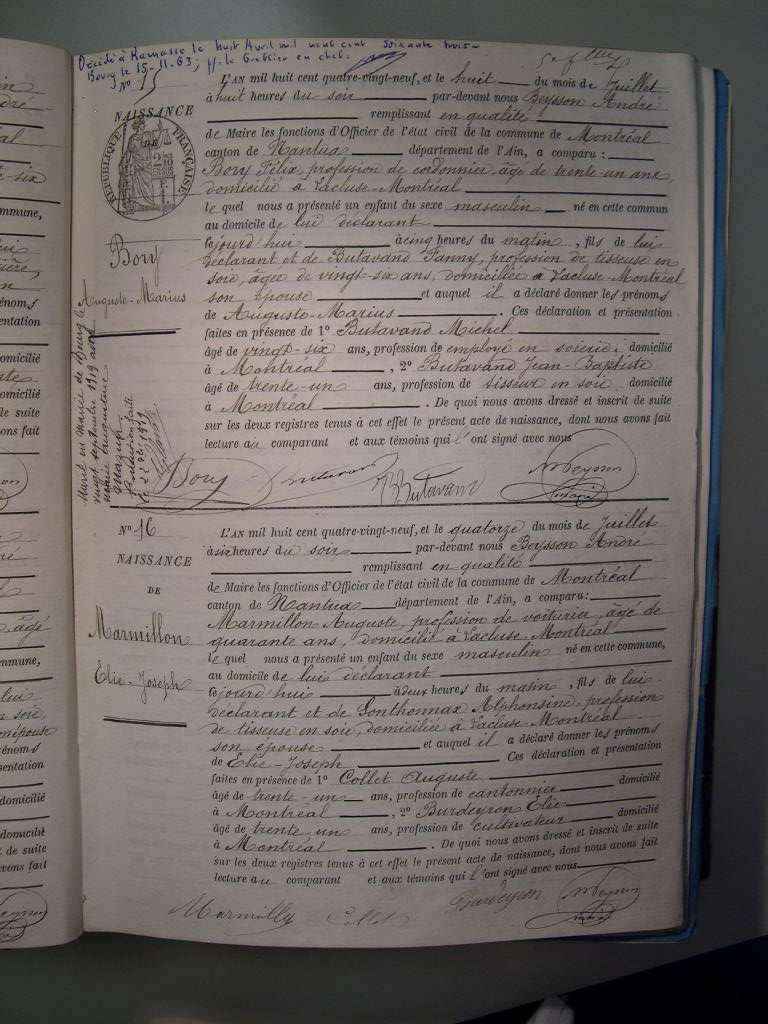 Décédé à Ramasse le huit Avril mil neuf cent soixante trois -
Bourg le 15-11-63, le Greffier en chef.
N° 15
NAISSANCE
DE
RÉPUBLIQUE FRANÇAISE
Bory
Auguste-Marius
Marié en mairie de Bourg le
vingt septembre 1919 avec
L'AN mil huit cent quatre-vingt-neuf, et le huit du mois de Juillet
à huit heures du soir par-devant nous Beysson André
remplissant en qualité
de Maire les fonctions d'Officier de l'état civil de la commune de Montréal
canton de Nantua département de l'Ain, a comparu :
Bory Félix, profession de cordonnier, âgé de trente un ans,
domicilié à Lacluse-Montréal
le quel nous a présenté un enfant du sexe masculin né en cette commun
au domicile de lui déclarant
cejourd'hui à cinq heures du matin, fils de lui
déclarant et de Butavand Fanny, profession de tisseuse en
soie, âgée de vingt-six ans, domiciliée à Lacluse-Montréal
son épouse et auquel il a déclaré donner les prénoms
de Auguste-Marius. Ces déclaration et présentation
faites en présence de 1° Butavand Michel
âgé de vingt-six ans, profession de employé en soierie, domicilié
à Montréal, 2° Butavand Jean-Baptiste
âgé de trente-un ans, profession de tisseur en soie domicilié
à Montréal. De quoi nous avons dressé et inscrit de suite
sur les deux registres tenus à cet effet le présent acte de naissance, dont nous avons fait
lecture au comparant et aux témoins qui l'ont signé avec nous
Bory Butavand Beysson
N° 16
NAISSANCE
DE
Marmillon
Élie-Joseph
L'AN mil huit cent quatre-vingt-neuf, et le quatorze du mois de Juillet
à six heures du soir par-devant nous Beysson André
remplissant en qualité
de Maire les fonctions d'Officier de l'état civil de la commune de Montréal
canton de Nantua département de l'Ain, a comparu :
Marmillon Auguste, profession de voiturier, âgé de
quarante ans, domicilié à Lacluse-Montréal
le quel nous a présenté un enfant du sexe masculin né en cette commune,
au domicile de lui déclarant
cejourd'hui à deux heures du matin, fils de lui
déclarant et de Gonthonnax Alphonsine, profession
de tisseuse en soie, domiciliée à Lacluse-Montréal
son épouse et auquel il a déclaré donner les prénoms
de Élie-Joseph Ces déclaration et présentation
faites en présence de 1° Collet Auguste
âgé de trente-un ans, profession de cantonnier domicilié
à Montréal, 2° Burdeyron Élie
âgé de trente-un ans, profession de cultivateur domicilié
à Montréal. De quoi nous avons dressé et inscrit de suite
sur les deux registres tenus à cet effet le présent acte de naissance, dont nous avons fait
lecture au comparant et aux témoins qui l'ont signé avec nous
Collet Burdeyron Beysson